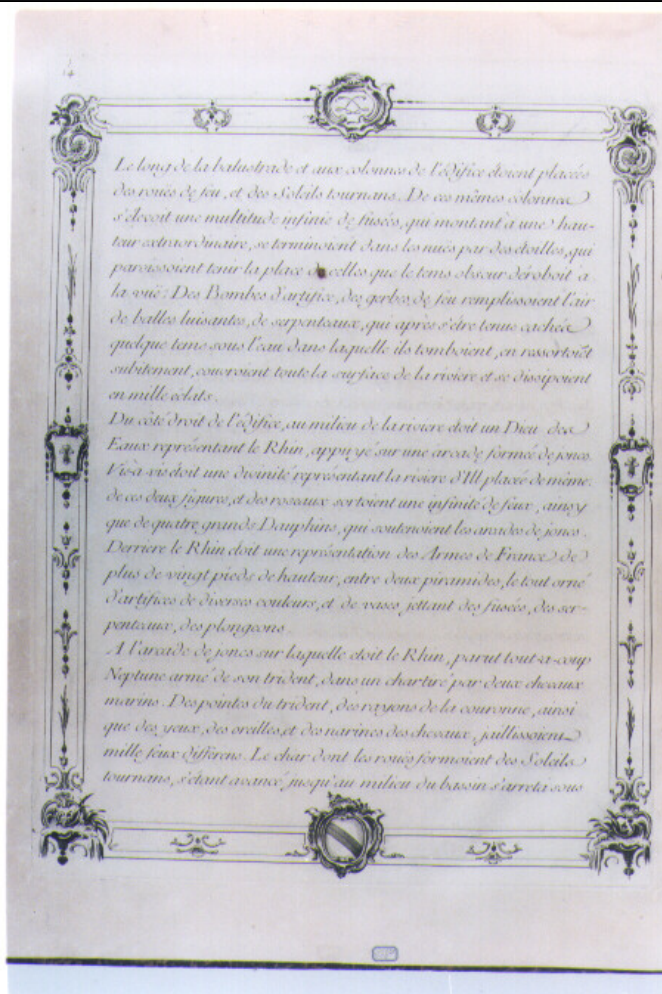 4
Le long de la balustrade et aux colonnes de l'édifice étoient placées
des roües de feu, et des Soleils tournans. De ces mêmes colonnes
s'élevoit une multitude infinie de fusées, qui montant à une hau-
teur extraordinaire, se terminoient dans les nuës par des étoilles, qui
paroissoient tenir la place de celles que le tems obscur déroboit a
la vuë: Des Bombes d'artifice, des gerbes de feu remplissoient l'air
de balles luisantes, de serpenteaux, qui après s'être tenus cachés
quelque tems sous l'eau dans laquelle ils tomboient, en ressortoiẽt
subitement, couvroient toute la surface de la rivière et se dissipoient
en mille éclats.
Du côté droit de l'édifice, au milieu de la riviere étoit un Dieu des
Eaux représentant le Rhin, appuyé sur une arcade formée de joncs.
Vis-à-vis étoit une divinité représentant la riviere d'Ill placée de même.
de ces deux figures, et des roseaux sortoient une infinité de feux, ainsy
que de quatre grands Dauphins, qui soutenoient les arcades de joncs.
Derriere le Rhin étoit une représentation des Armes de France de
plus de vingt pieds de hauteur, entre deux piramides, le tout orné
d'artifices de diverses couleurs, et de vases jettant des fusées, des ser-
penteaux, des plongeons.
A l'arcade de joncs sur laquelle étoit le Rhin, parut tout-a-coup
Neptune armé de son trident, dans un char tiré par deux chevaux
marins. Des pointes du trident, des rayons de la couronne, ainsi
que des yeux, des oreilles, et des narines des chevaux, jaillissoient
mille feux différens. Le char dont les roües formoient des Soleils
tournans, s'étant avancé jusqu'au milieu du bassin s'arreta sous